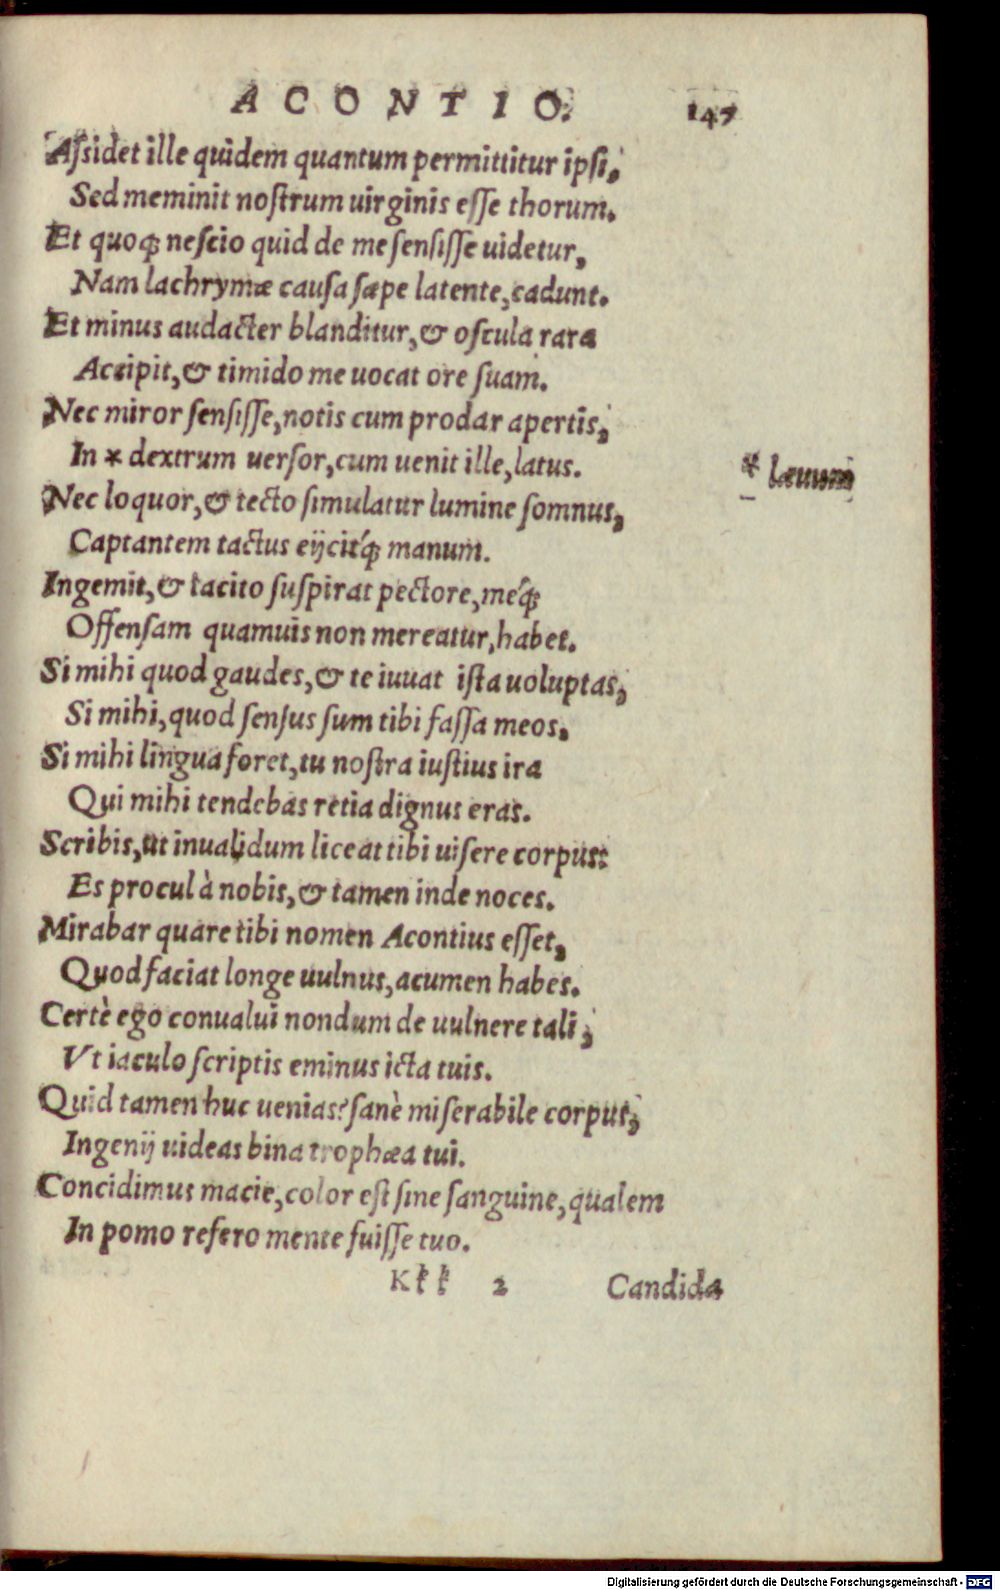 ACONTIO. 147
Aſsidet ille quidem quantum permittitur ipſi,
Sed meminit noſtrum uirginis eſſe thorum.
Et quoq; neſcio quid de me ſenſiſſe uidetur,
Nam lachrymæ cauſa ſæpe latente, cadunt.
Et minus audacter blanditur, & oſcula rara
Accipit, & timido me uocat ore ſuam.
Nec miror ſenſiſſe, notis cum prodar apertis,
In * dextrum uerſor, cum uenit ille, latus.
* læuum
Nec loquor, & tecto ſimulatur lumine ſomnus,
Captantem tactus eijcitq́; manum.
Ingemit, & tacito ſuſpirat pectore, meq́;
Offenſam quamuis non mereatur, habet.
Si mihi quod gaudes, & te iuuat iſta uoluptas,
Si mihi, quod ſenſus ſum tibi faſſa meos.
Si mihi lingua foret, tu noſtra iuſtius ira
Qui mihi tendebas retia dignus eras.
Scribis, ut inualidum liceat tibi uiſere corpus:
Es procul à nobis, & tamen inde noces.
Mirabar quare tibi nomen Acontius eſſet,
Quod faciat longe uulnus, acumen habes.
Certè ego conualui nondum de uulnere tali,
Vt iaculo ſcriptis eminus icta tuis.
Quid tamen huc uenias? ſanè miſerabile corpus,
Ingenij uideas bina trophæa tui.
Concidimus macie, color eſt ſine ſanguine, qualem
In pomo refero mente fuiſſe tuo.
Kkk 2 Candida
Digitalisierung gefördert durch die Deutsche Forschungsgemeinschaft - DFG